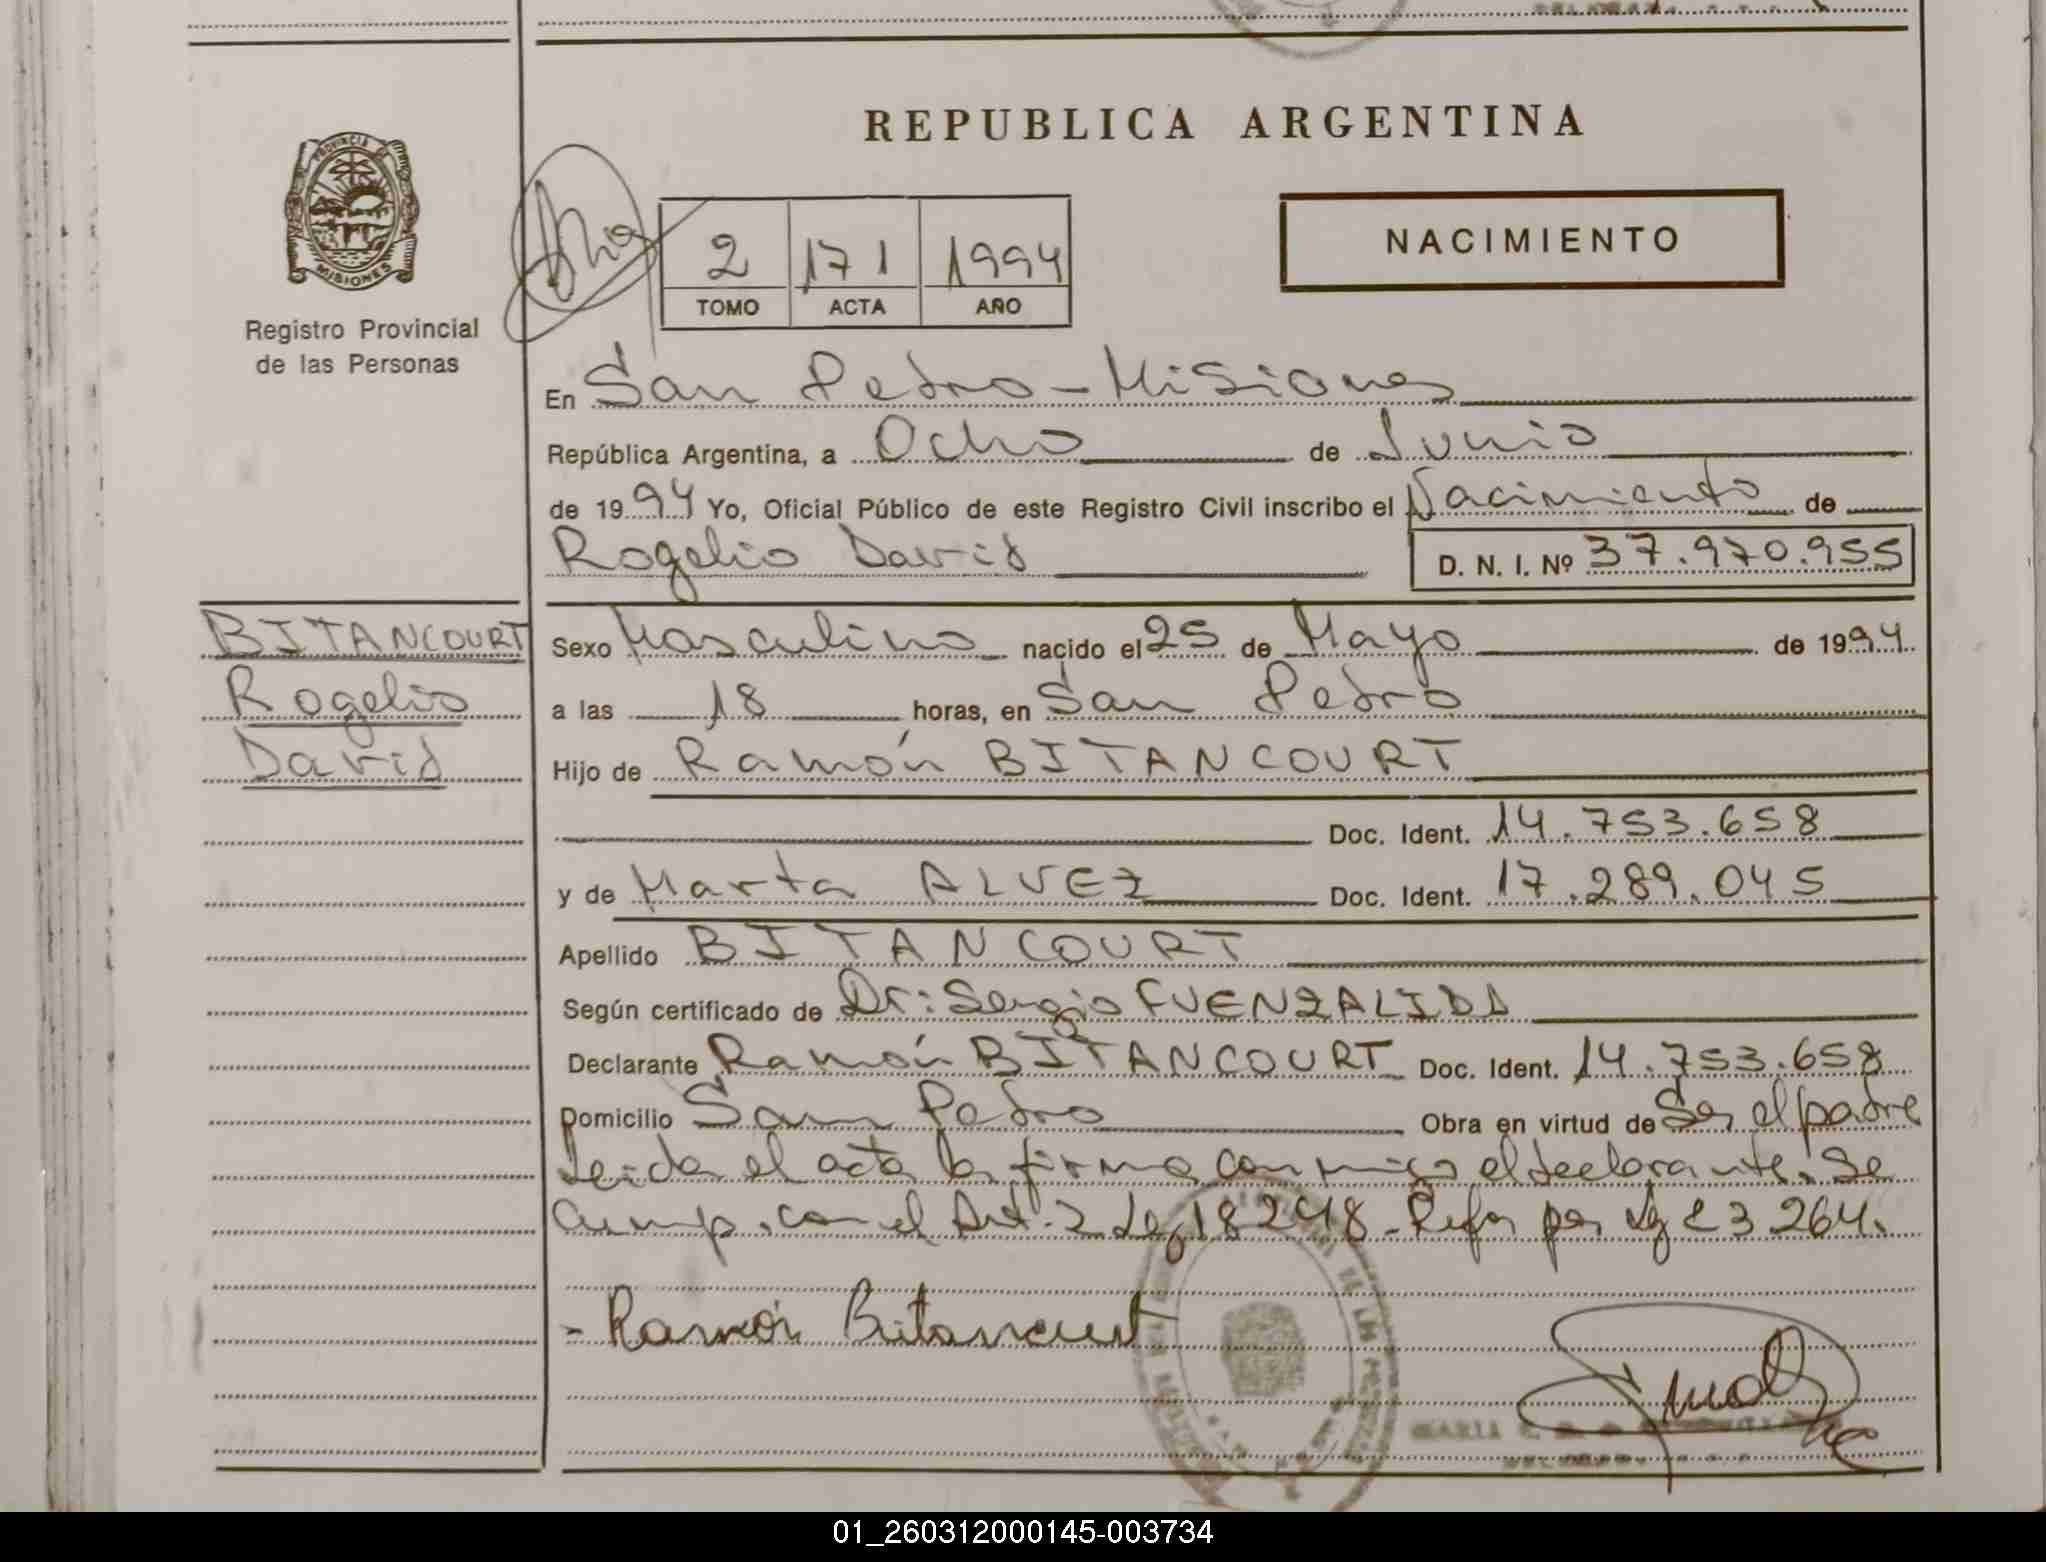 REPUBLICA ARGENTINA
PROVINCIA DE
MISIONES
Registro Provincial
de las Personas
2 171 1994
TOMO ACTA AÑO
NACIMIENTO
En San Pedro - Misiones
República Argentina, a Ocho de Junio
de 1994 Yo, Oficial Público de este Registro Civil inscribo el Nacimiento de
Rogelio David D. N. I. Nº 37.970.955
BITANCOURT
Rogelio
David
Sexo Masculino nacido el 25 de Mayo de 1994
a las 18 horas, en San Pedro
Hijo de Ramón BITANCOURT
Doc. Ident. 14.753.658
y de Marta ALVEZ Doc. Ident. 17.289.045
Apellido BITANCOURT
Según certificado de Dr: Sergio FUENZALIDA
Declarante Ramón BITANCOURT Doc. Ident. 14.753.658
Domicilio San Pedro Obra en virtud de Ser el padre
Leida el acta la firma conmigo el declarante. Se
cump. con el Art. 2 Ley 18248 - Refor por Ley 23264.
- Ramón Bitancourt
MARIA
01_260312000145-003734